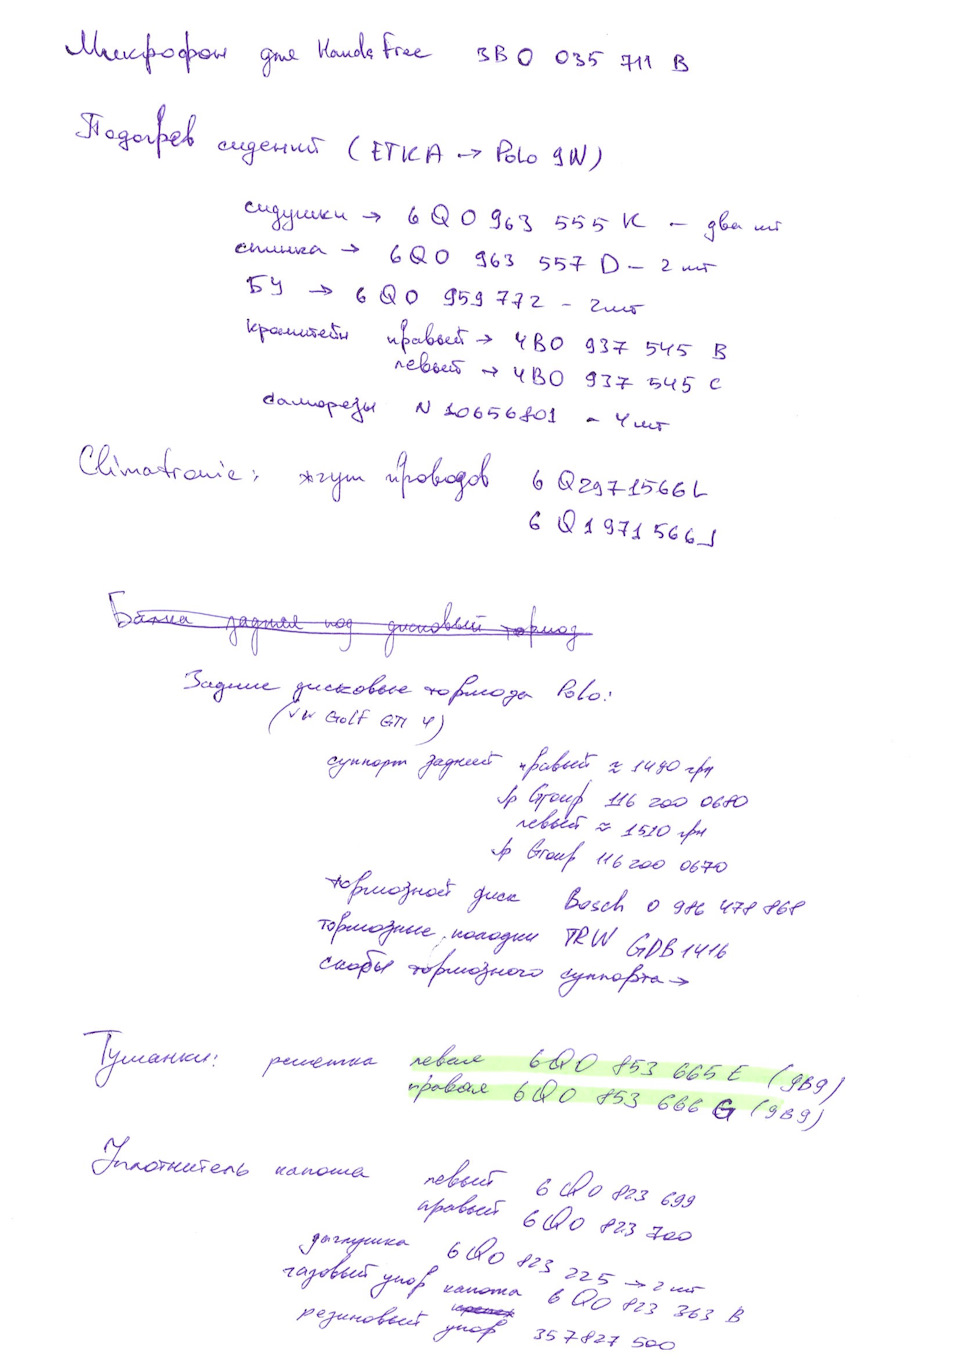 Микрофон для Hands Free 3B0 035 711 B
Подогрев сидений (ETKA → Polo 9N)
сидушки → 6Q0 963 555 K – два шт
спинка → 6Q0 963 557 D – 2 шт
БУ → 6Q0 959 772 – 2шт
кронштейн правый → 4B0 937 545 B
левый → 4B0 937 545 C
саморезы N 10656801 – 4 шт
Climatronic: жгут проводов 6Q2971566L
6Q1971566J
Балка задняя под дисковый тормоз
Задние дисковые тормоза Polo:
(VW Golf GTI 4)
суппорт задний правый ≈ 1490 грн
Jp Group 116 200 0680
левый ≈ 1510 грн
Jp Group 116 200 0670
тормозной диск Bosch 0 986 478 868
тормозные колодки TRW GDB1416
скобы тормозного суппорта →
Туманки: решетка левая 6Q0 853 665 E (9B9)
правая 6Q0 853 666 G (9B9)
Уплотнитель капота левый 6Q0 823 699
правый 6Q0 823 700
заглушка 6Q0 823 225 → 2 шт
газовый упор капота 6Q0 823 363 B
резиновый упор 357827500